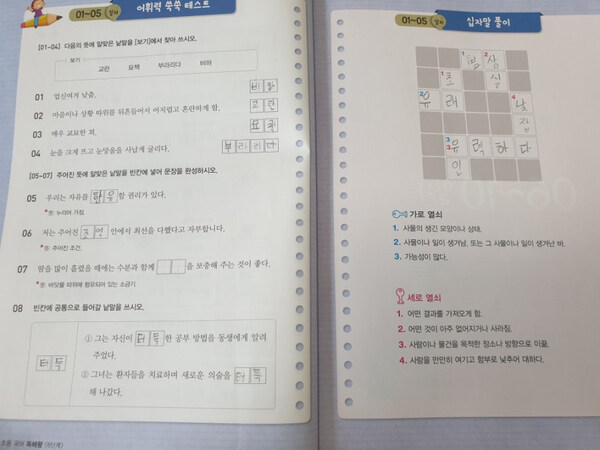 01~05 일차
어휘력 쑥쑥 테스트
[01~04] 다음의 뜻에 알맞은 낱말을 [보기]에서 찾아 쓰시오.
보기
교란 묘책 부라리다 비하
01 업신여겨 낮춤.
비하
02 마음이나 상황 따위를 뒤흔들어서 어지럽고 혼란하게 함.
교란
03 매우 교묘한 꾀.
묘책
04 눈을 크게 뜨고 눈망울을 사납게 굴리다.
부라리다
[05~07] 주어진 뜻에 알맞은 낱말을 빈칸에 넣어 문장을 완성하시오.
05 우리는 자유를 할 권리가 있다.
뜻: 누리어 가짐.
06 저는 주어진 안에서 최선을 다했다고 자부합니다.
뜻: 주어진 조건.
07 땀을 많이 흘렸을 때에는 수분과 함께 을 보충해 주는 것이 좋다.
뜻: 바닷물 따위에 함유되어 있는 소금기.
08 빈칸에 공통으로 들어갈 낱말을 쓰시오.
터득
① 그는 자신이 터득한 공부 방법을 동생에게 알려
주었다.
② 그녀는 환자들을 치료하며 새로운 의술을 터득
해 나갔다.
초등 국어 독해왕
01~05 일차
십자말 풀이
1 2 상
1 초 실
2 유 래 4 낮
잡
3 3 유 력 하 다
인
가로 열쇠
1. 사물의 생긴 모양이나 상태.
2. 사물이나 일이 생겨남. 또는 그 사물이나 일이 생겨난 바.
3. 가능성이 많다.
세로 열쇠
1. 어떤 결과를 가져오게 함.
2. 어떤 것이 아주 없어지거나 사라짐.
3. 사람이나 물건을 목적한 장소나 방향으로 이끎.
4. 사람을 만만히 여기고 함부로 낮추어 대하다.